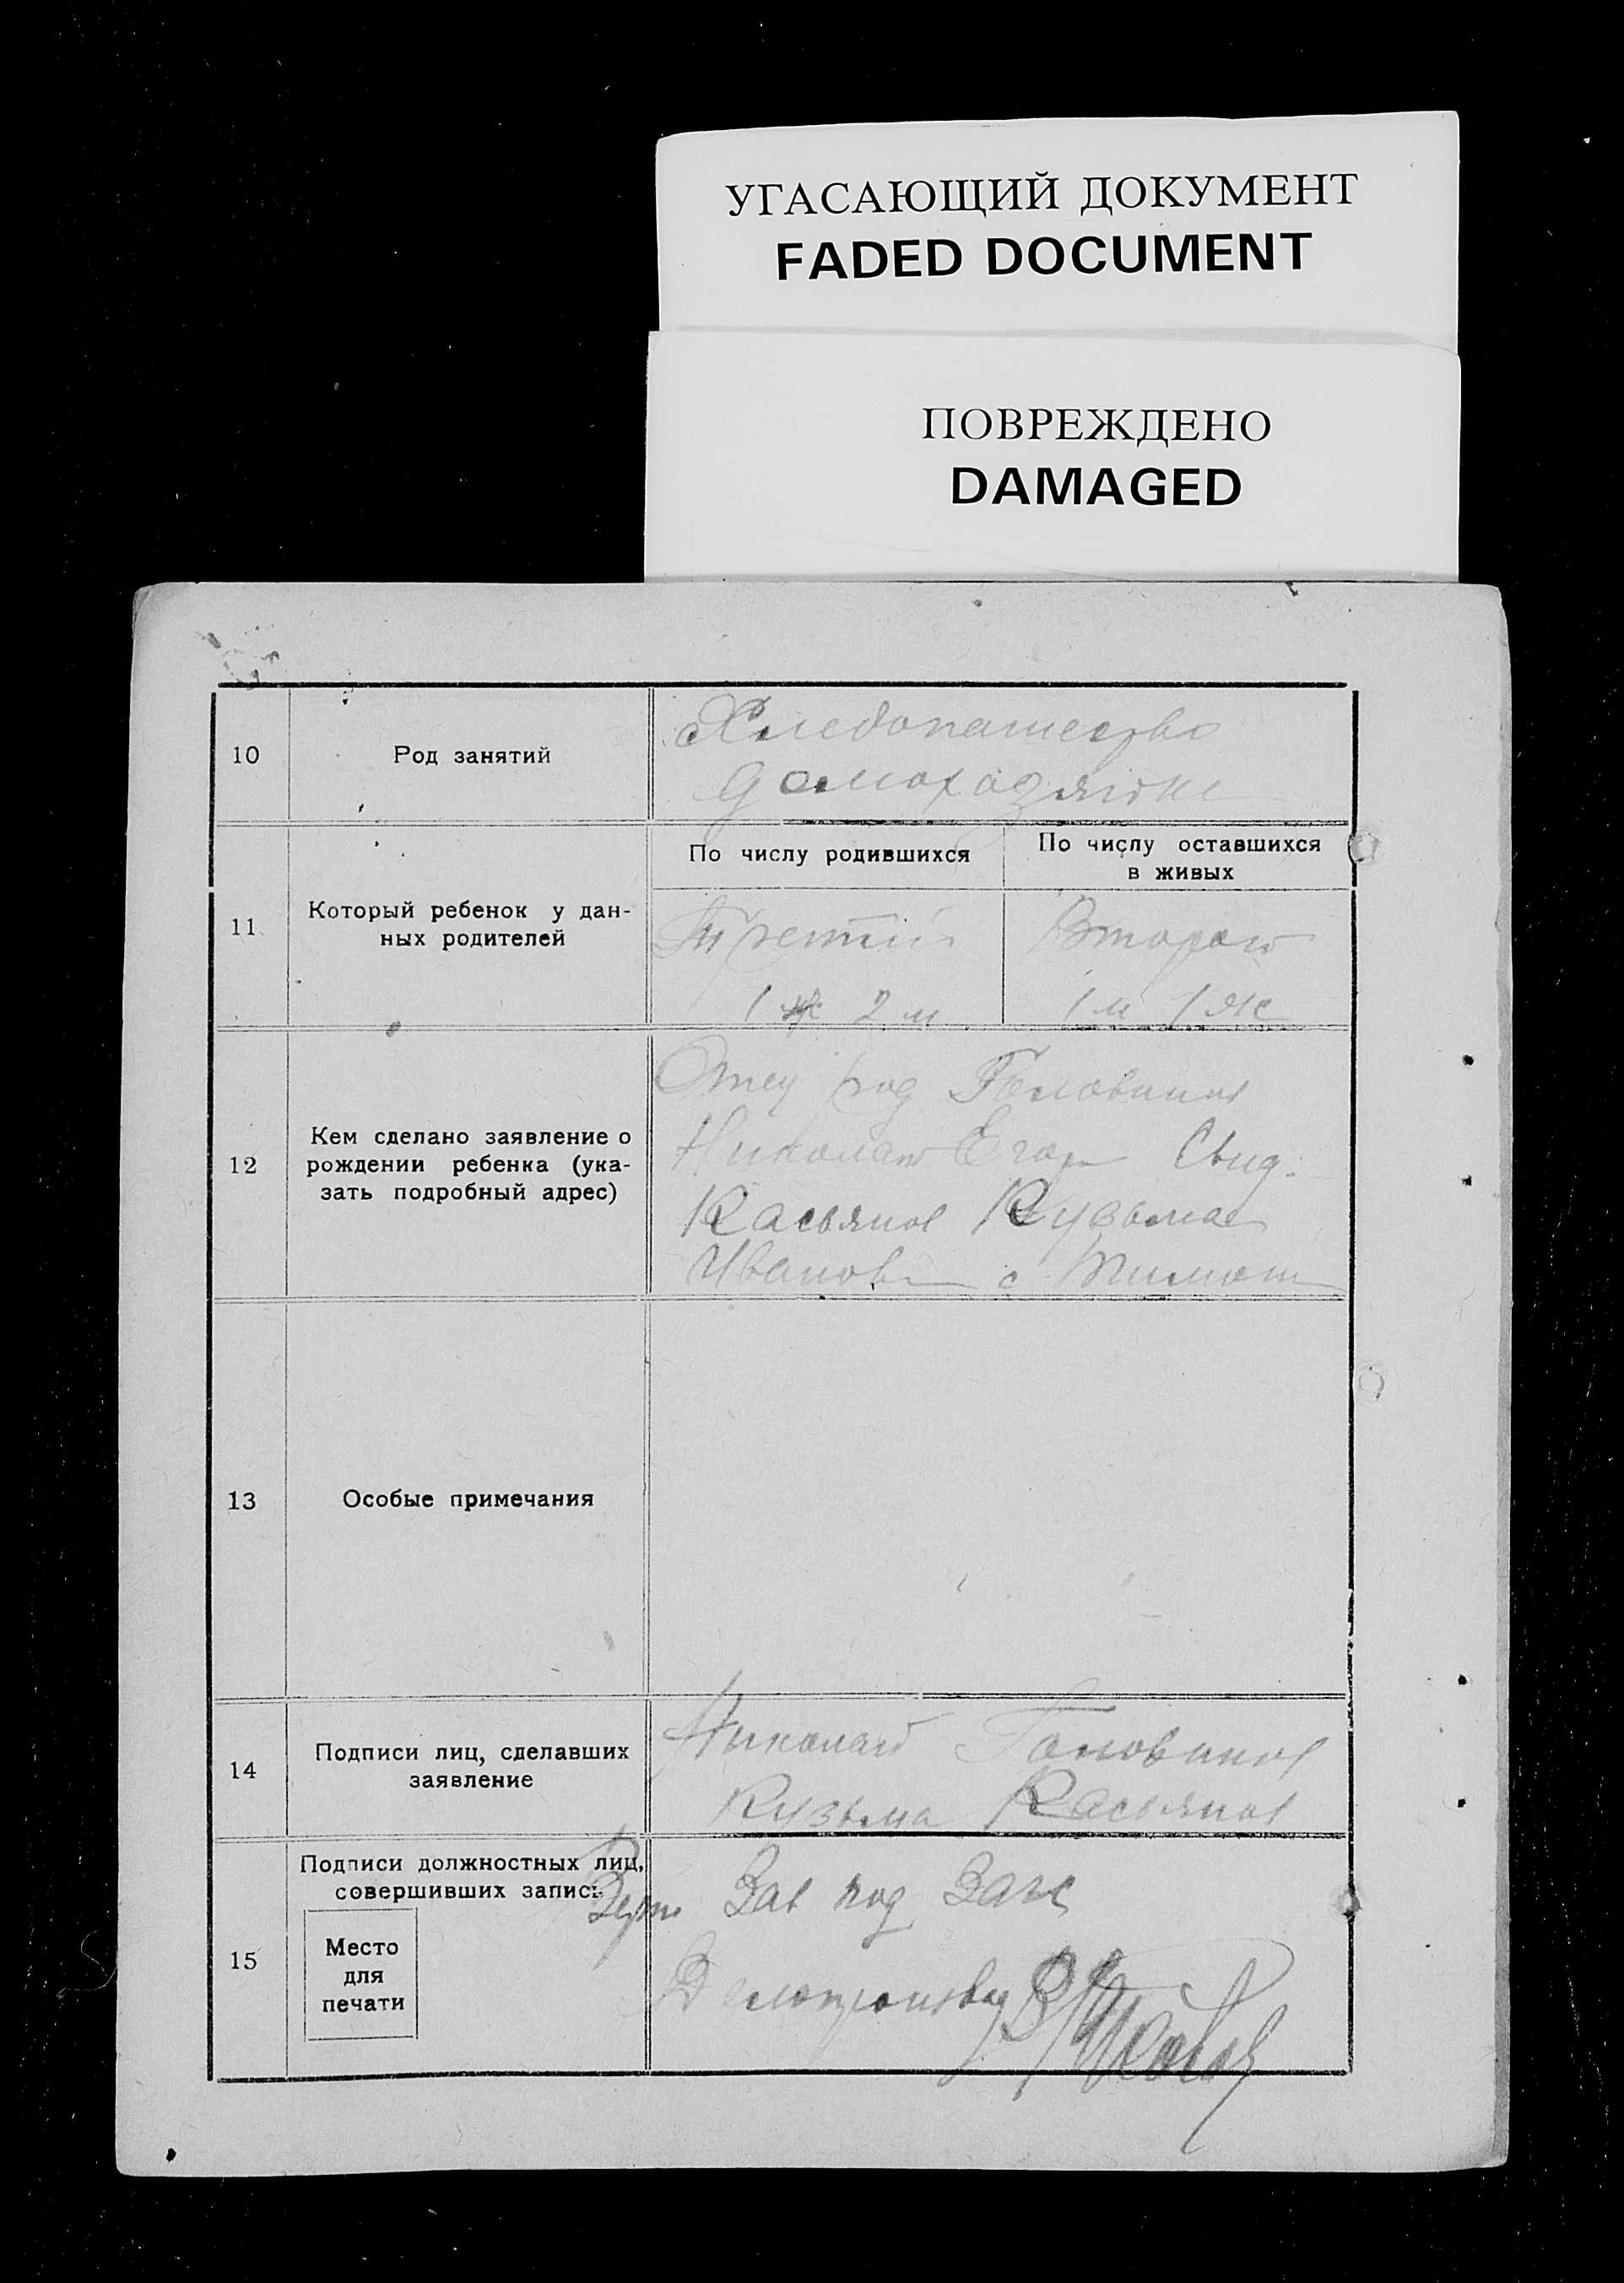 УГАСАЮЩИЙ ДОКУМЕНТ
FADED DOCUMENT
ПОВРЕЖДЕНО
DAMAGED
10
Род занятий
Хлебопашество
домохозяйки
11
Который ребенок у дан-
ных родителей
По числу родившихся
Третий
1 ж 2 м
По числу оставшихся
в живых
Второй
1 м 1 ж
12
Кем сделано заявление о
рождении ребенка (ука-
зать подробный адрес)
Отец Голованов
Николай Егор Свид.
Касьянов Кузьма
Иванов с
13
Особые примечания
14
Подписи лиц, сделавших
заявление
Николай Голованов
Кузьма Касьянов
15
Подписи должностных лиц,
совершивших запись
Место
для
печати
Зав под Загс
Делопроизвод